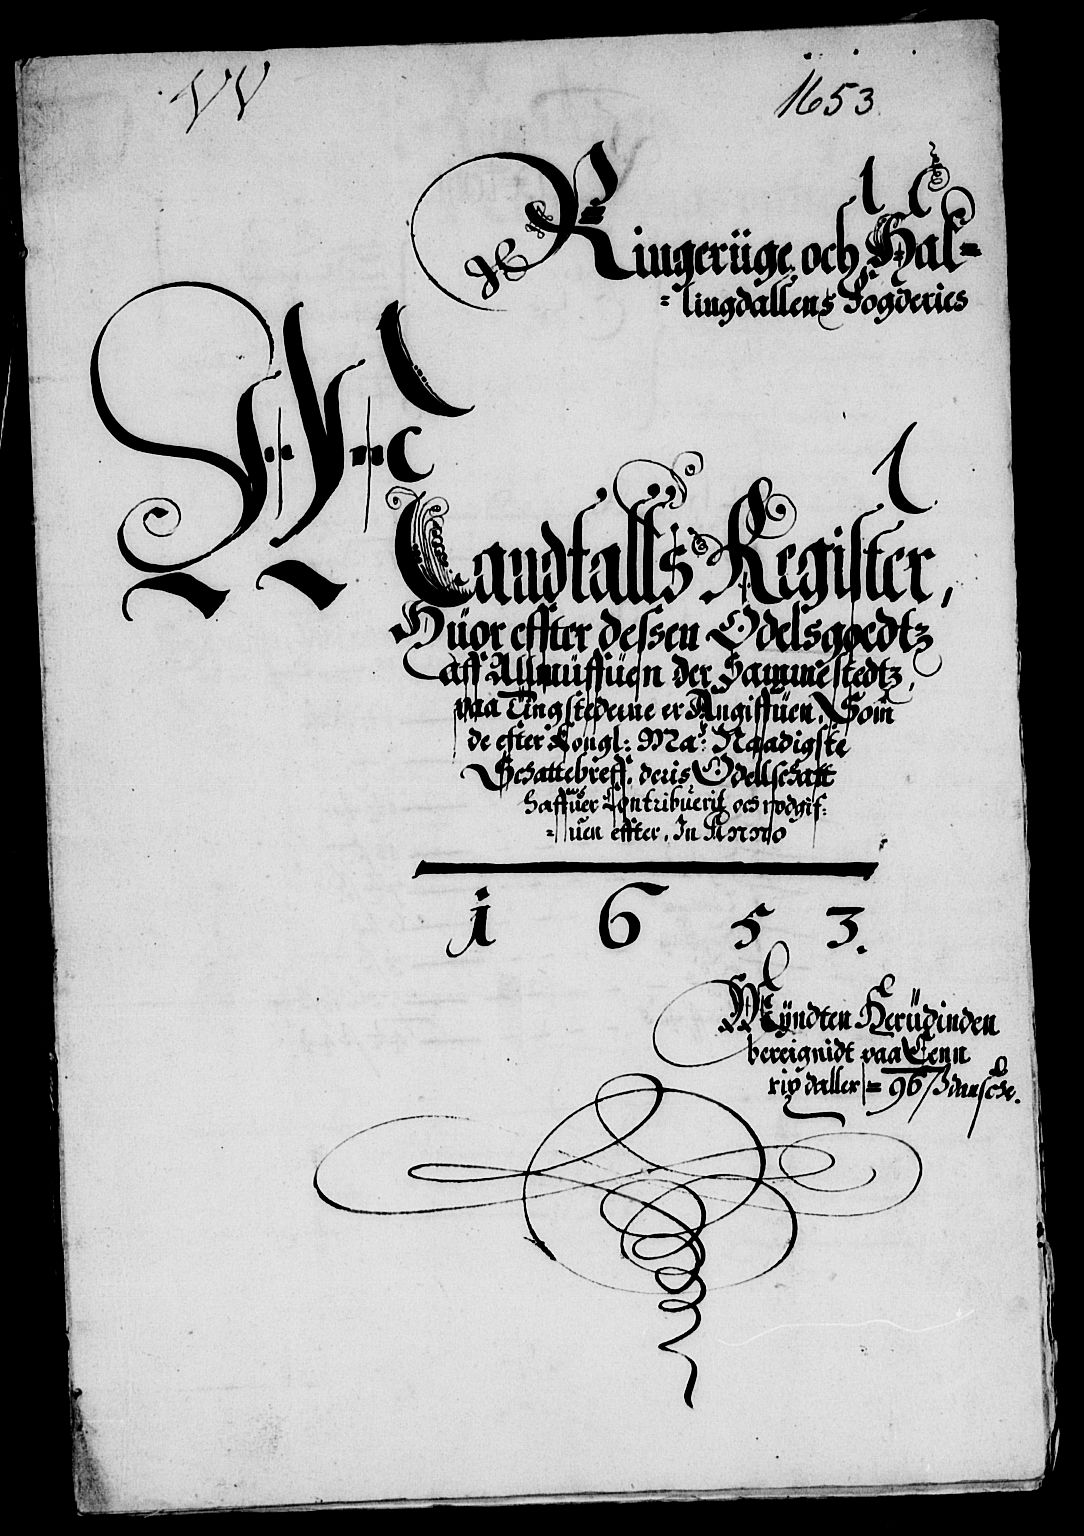 1653
Ringerüge och Hal-
=lingdallens Fogderies
Mandtalls Register,
Hüor effter dessen Odelsgoedtz
aff Allmüffüen der Sammestedtz,
paa Tingstederne er Angiffüen, Som
de efter Kongl: Ma: Naadigste
Schattebreff, deris Odellschatt
haffuer Contribuerit och udgif:
=uen effter. In Anno
1653.
Myndten herüdinden
bereignidt paa
rix daller = 96 ß dansche.